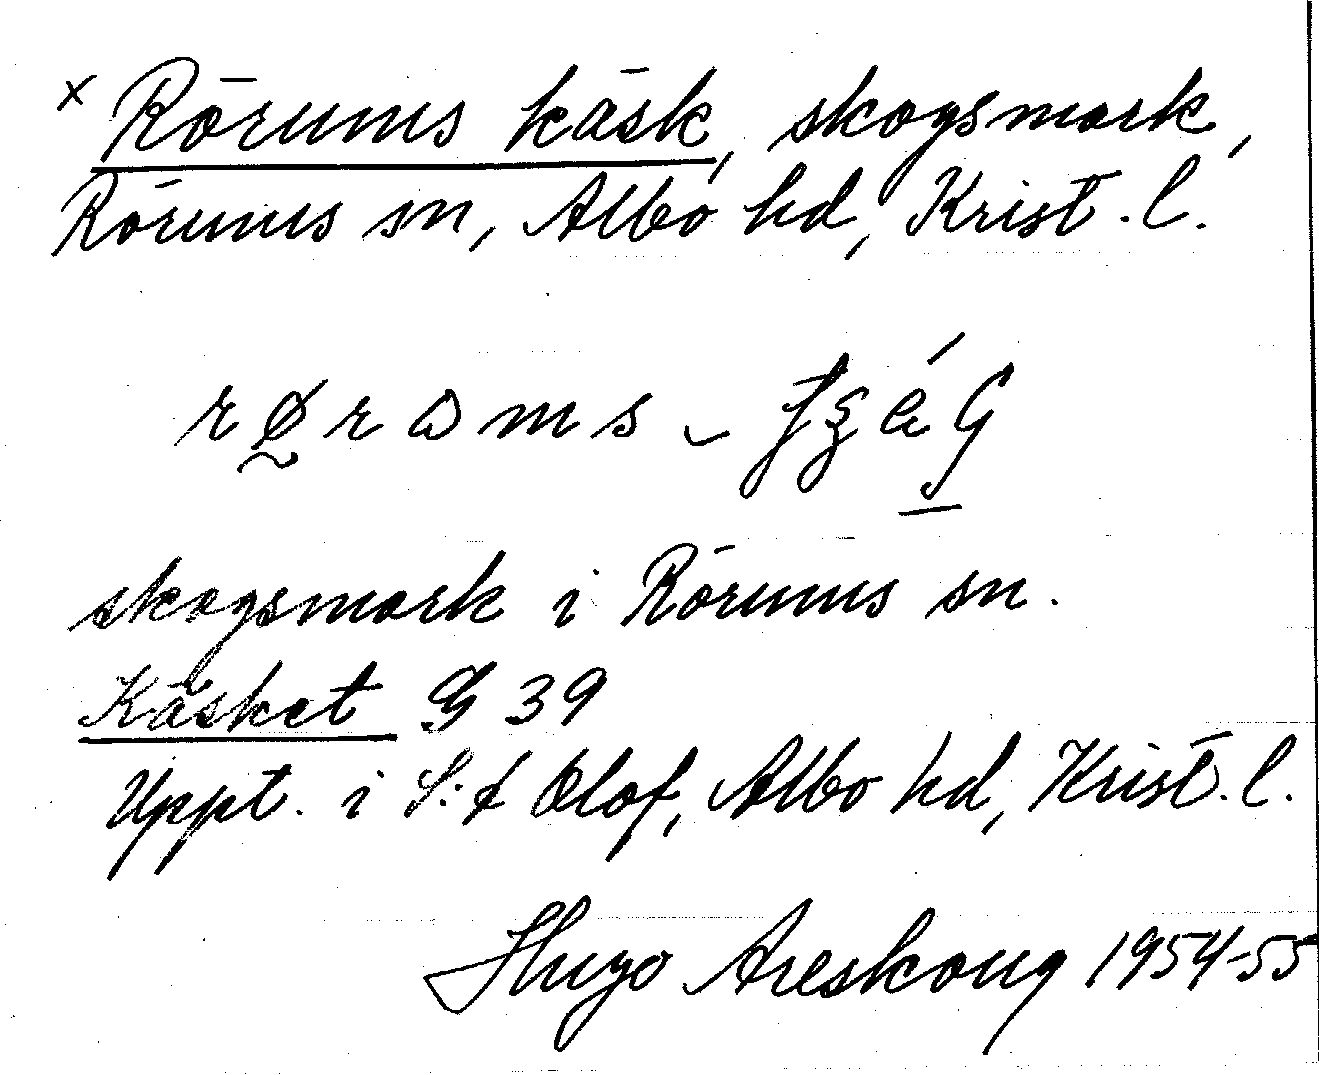 x Rörums käsk, skogsmark,
Rörums sn, Albo hd, Krist. l.
skogsmark i Rörums sn.
Käsket G 39
Uppt. i S:t Olof, Albo hd, Krist. l.
Hugo Areskoug 1954-55